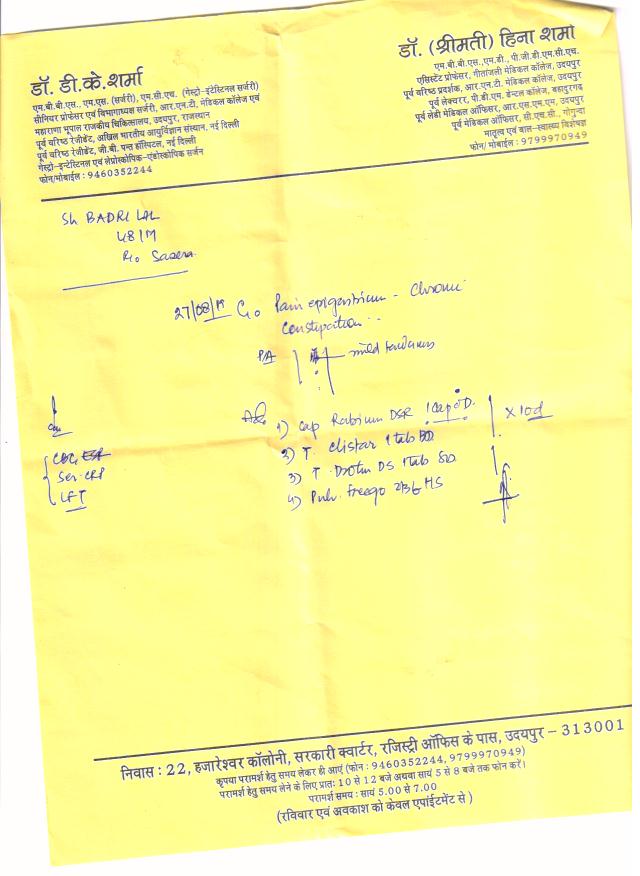 डॉ. डी.के.शर्मा
एम.बी.बी.एस., एम.एस. (सर्जरी), एम.सी.एच. (गेस्ट्रो-इंटेस्टिनल सर्जरी)
सीनियर प्रोफेसर एवं विभागाध्यक्ष सर्जरी, आर.एन.टी. मेडिकल कॉलेज एवं
महाराणा भूपाल राजकीय चिकित्सालय, उदयपुर, राजस्थान
पूर्व वरिष्ठ रेजीडेंट, अखिल भारतीय आयुर्विज्ञान संस्थान, नई दिल्ली
पूर्व वरिष्ठ रेजीडेंट, जी.बी. पन्त हॉस्पिटल, नई दिल्ली
गेस्ट्रो-इन्टेस्टिनल एवं लेप्रोस्कोपिक-एंडोस्कोपिक सर्जन
फोन/मोबाईल : 9460352244
डॉ. (श्रीमती) हिना शर्मा
एम.बी.बी.एस.,एम.डी., पी.जी.डी.एम.सी.एच.
एसिस्टेंट प्रोफेसर, गीतांजली मेडिकल कॉलेज, उदयपुर
पूर्व वरिष्ठ प्रदर्शक, आर.एन.टी. मेडिकल कॉलेज, उदयपुर
पूर्व लेक्चरर, पी.डी.एम. डेन्टल कॉलेज, बहादुरगढ़
पूर्व लेडी मेडिकल ऑफिसर, आर.एस.एम.एम, उदयपुर
पूर्व मेडिकल ऑफिसर, सी.एच.सी., गोगुन्दा
मातृत्व एवं बाल-स्वास्थ्य विशेषज्ञ
फोन/ मोबाईल : 9799970949
Sh BADRI LAL
48/M
R/o
27/08/19 C/o Pain epigastrium - Chronic
Constipation
P/A mild tenderness
1) Cap Rabium DSR 1 Cap OD
x 10d
2) T. Clistar 1 tab BD
3) T. Drotin DS 1 tab BD
4) Pulv. Freego HS
CBC
Ser. CRP
LFT
निवास : 22, हजारेश्वर कॉलोनी, सरकारी क्वार्टर, रजिस्ट्री ऑफिस के पास, उदयपुर – 313001
कृपया परामर्श हेतु समय लेकर ही आएं (फोन : 9460352244, 9799970949)
परामर्श हेतु समय लेने के लिए प्रातः 10 से 12 बजे अथवा सायं 5 से 8 बजे तक फोन करें।
परामर्श समय : सायं 5.00 से 7.00
(रविवार एवं अवकाश को केवल एपाईंटमेंट से )